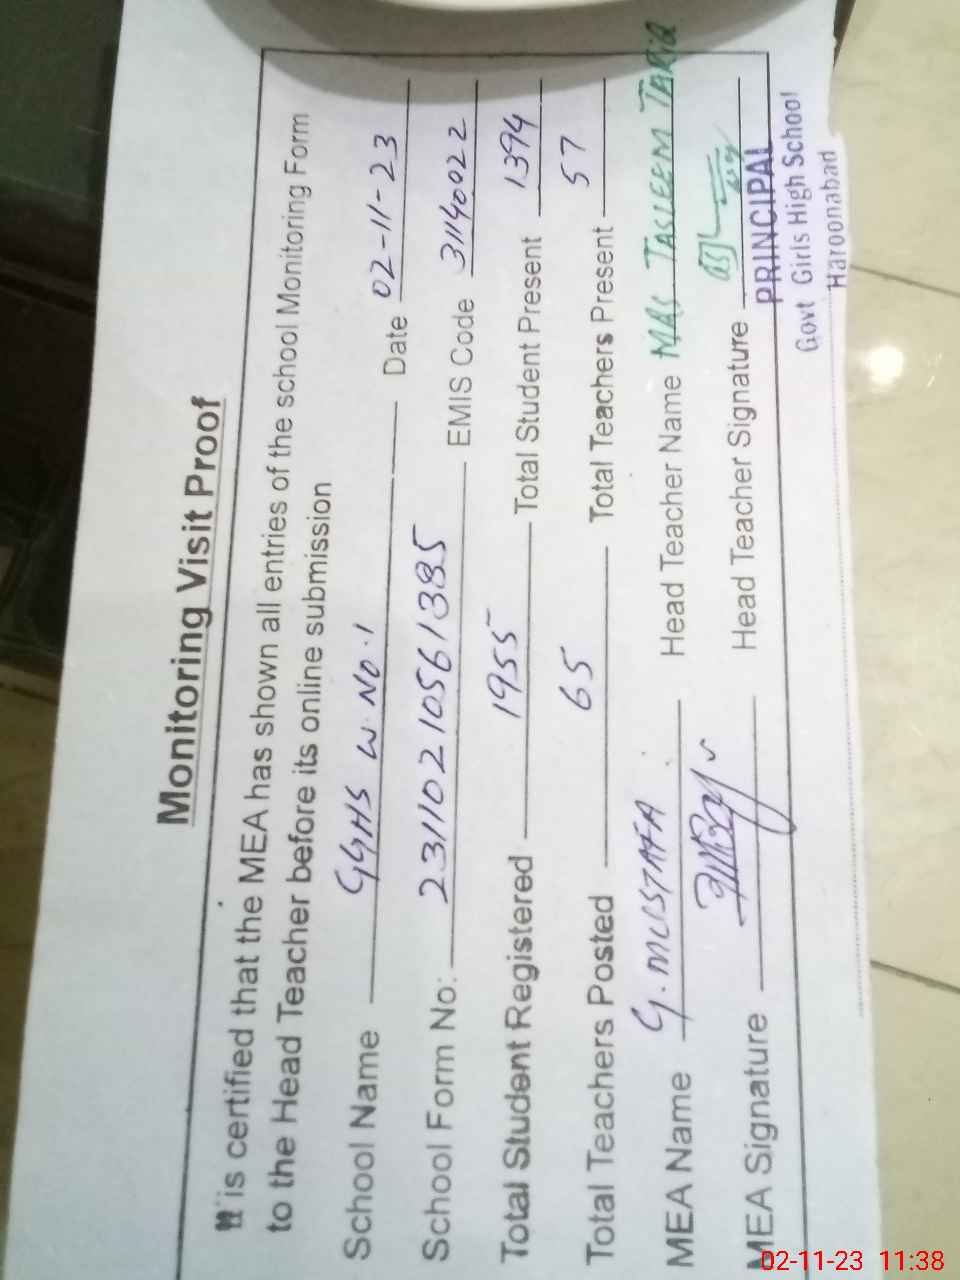 Monitoring Visit Proof
It is certified that the MEA has shown all entries of the school Monitoring Form
to the Head Teacher before its online submission
School Name GGHS W.NO.1 Date 02-11-23
School Form No: 23110210561385 EMIS Code 31140022
Total Student Registered 1955 Total Student Present 1394
Total Teachers Posted 65 Total Teachers Present 57
MEA Name G.MUSTAFA Head Teacher Name MRS TASLEEM TARIQ
MEA Signature Head Teacher Signature
PRINCIPAL
Govt Girls High School
Haroonabad
02-11-23 11:38